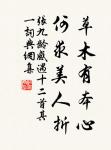 草木有本心
何求美人折
張九齡感遇十二首其
一詞典網集